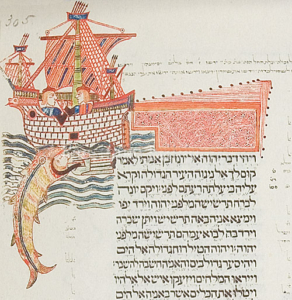 305
ויהי דבר יהוה אל יונה בן אמתי לאמר
קום לך אל נינוה העיר הגדולה וקרא
עליה כי עלתה רעתם לפני ויקם יונה ל
ברח תרשישה מלפני יהוה וירד יפו
וימצא אניה באה תרשיש ויתן שכרה
וירד בה לבוא עמהם תרשישה מלפני
יהוה ויהוה הטיל רוח גדולה אל הים
ויהי סער גדול בים והאניה חשבה להשבר
וייראו המלחים ויזעקו איש אל אלהיו
ויטלו את הכלים אשר באניה אל הים